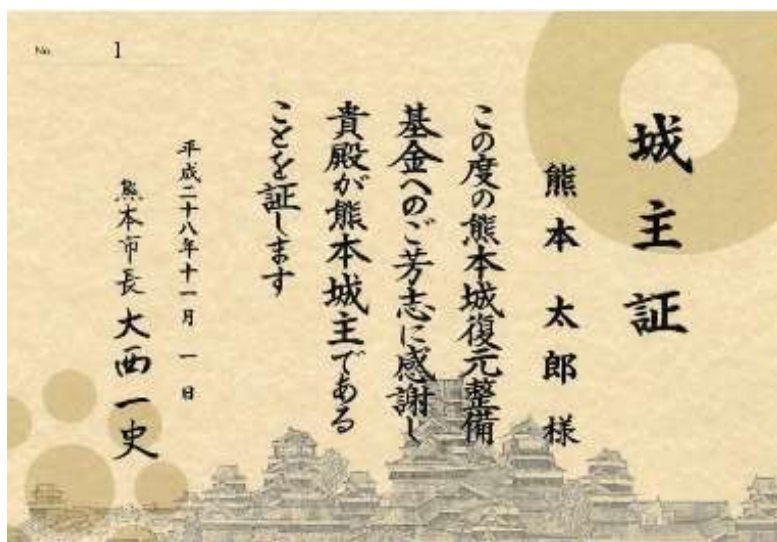 No. 1
城主証
熊本 太郎 様
この度の熊本城復元整備
基金へのご芳志に感謝し
貴殿が熊本城主である
ことを証します
平成二十八年十一月 一 日
熊本市長 大西一史